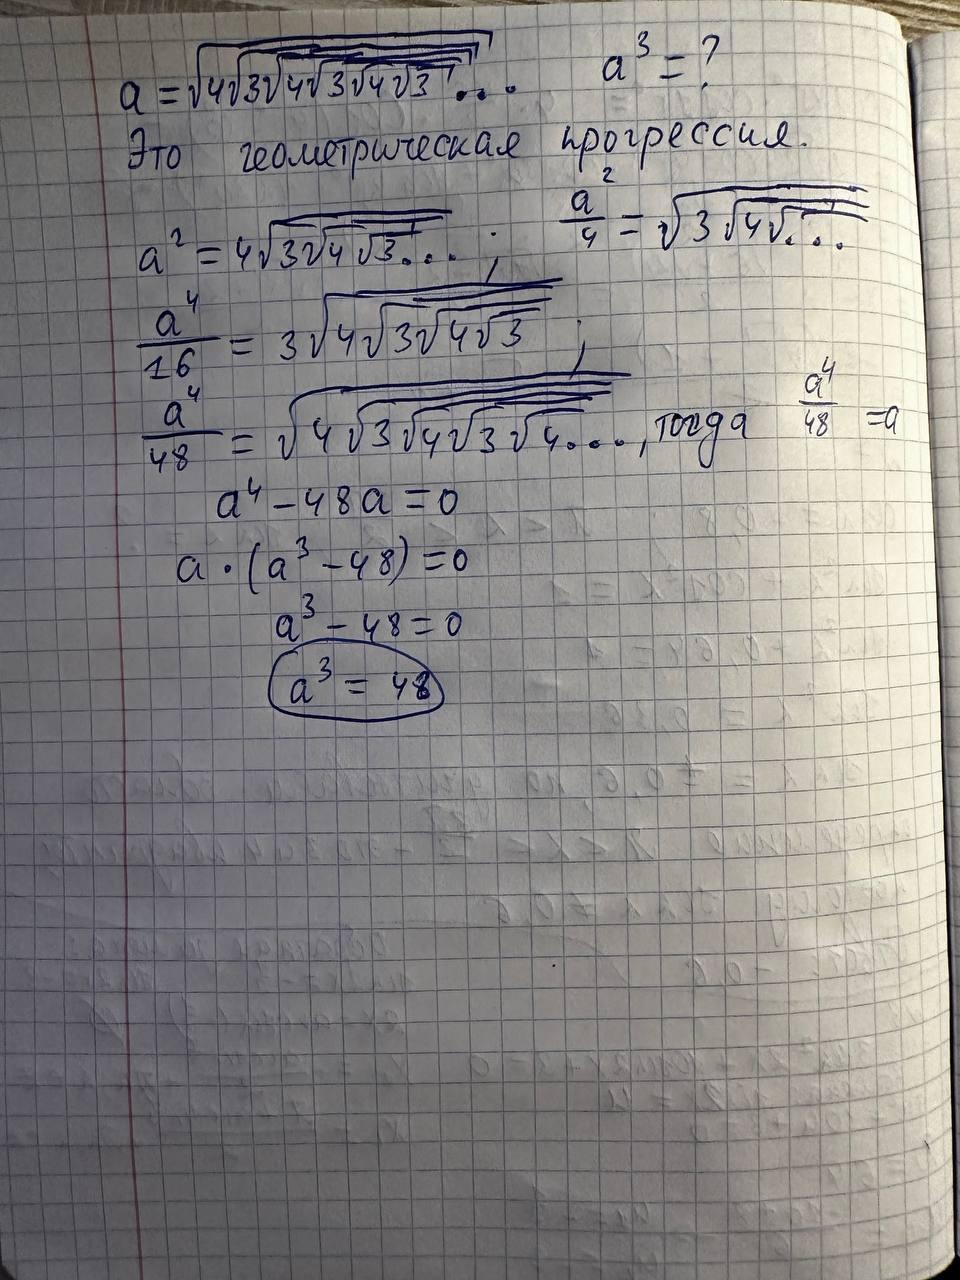 a = √4√3√4√3√4√3... a³ = ?
Это геометрическая прогрессия.
a² = 4√3√4√3... ; a²/4 = √3√4√...
a⁴/16 = 3√4√3√4√3 ;
a⁴/48 = √4√3√4√3√4..., тогда a⁴/48 = a
a⁴ - 48a = 0
a · (a³ - 48) = 0
a³ - 48 = 0
a³ = 48